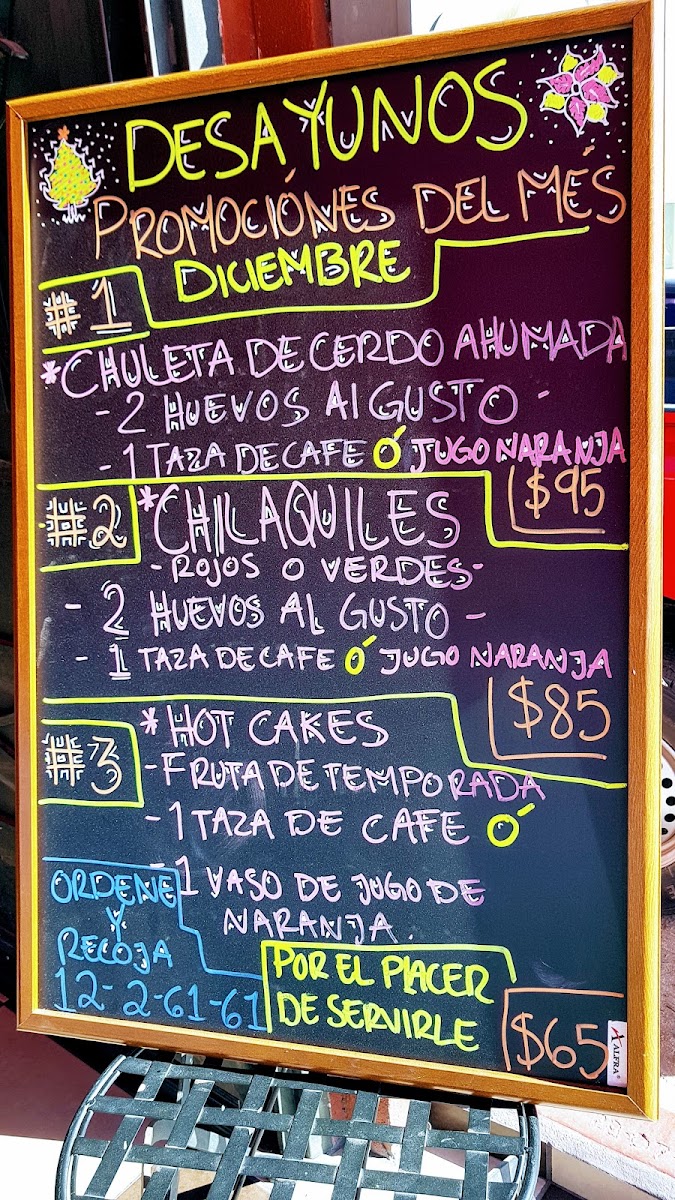 DESAYUNOS
PROMOCIÓNES DEL MÉS
DICIEMBRE
# 1
*CHULETA DE CERDO AHUMADA
- 2 HUEVOS Al GUSTO -
- 1 TAZA DE CAFE Ó JUGO NARANJA
$95
#2 *CHILAQUILES
- ROJOS O VERDES-
- 2 HUEVOS AL GUSTO -
- 1 TAZA DE CAFE Ó JUGO NARANJA
$85
#3 *HOT CAKES
- FRUTA DE TEMPORADA
- 1 TAZA DE CAFE Ó
- 1 VASO DE JUGO DE
NARANJA.
ORDENE
Y
RECOJA
12-2-61-61
POR EL PlACER
DE SERVIRLE
$65
ALFRA®